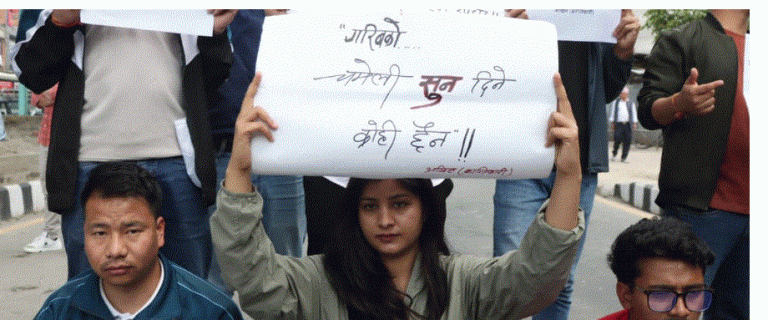 "गरिबको....
चमेली सुन दिने
कोही छैन"!!